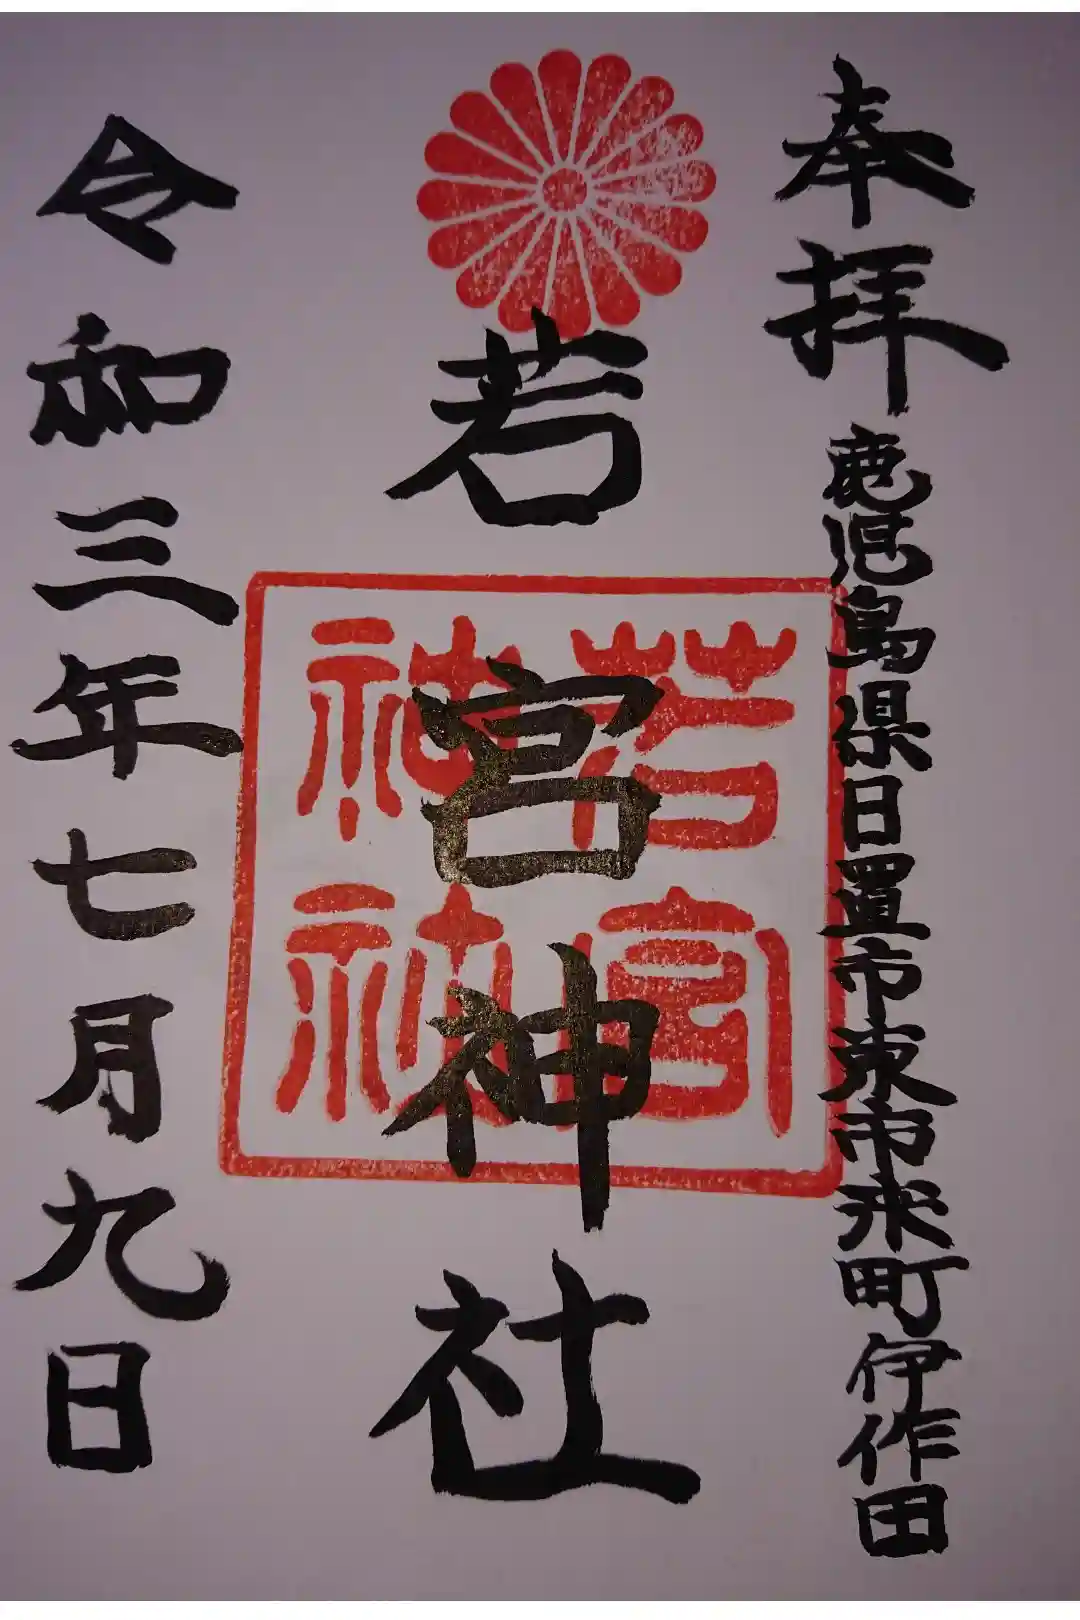 奉拝
鹿児島県日置市東市来町伊作田
若宮神社
若宮
神社
令和三年七月九日